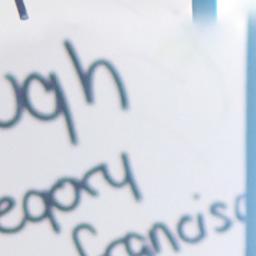 ugh
egory
francisc